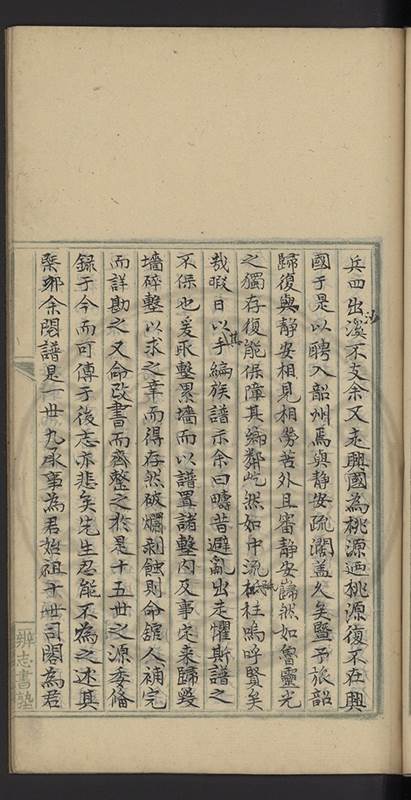 兵四出沙溪不支余又走興國為桃源迺桃源復不在興
國于是以聘入韶州焉與靜安疏濶盖久矣暨予旅韶
歸復與靜安相見相勞苦外且審靜安歸然如魯靈光
之獨存復能保障其鄉鄰屹然如中流砥柱嗚呼賢矣
哉暇日以其手編族譜示余曰疇昔避亂出走懼斯譜之
不保也爰取鑿累墻而以譜置諸鑿内及事定来歸毀
墻碎鑿以求之幸而得存然破爛剥蝕則命舘人補完
而詳勘之又命改書而齊整之於是十五世之源委僃
録于今而可傳于後志亦悲矣先生忍能不為之述其
槩耶余閲譜是一世九承事為君始祖十世司閣為君
辨志書塾